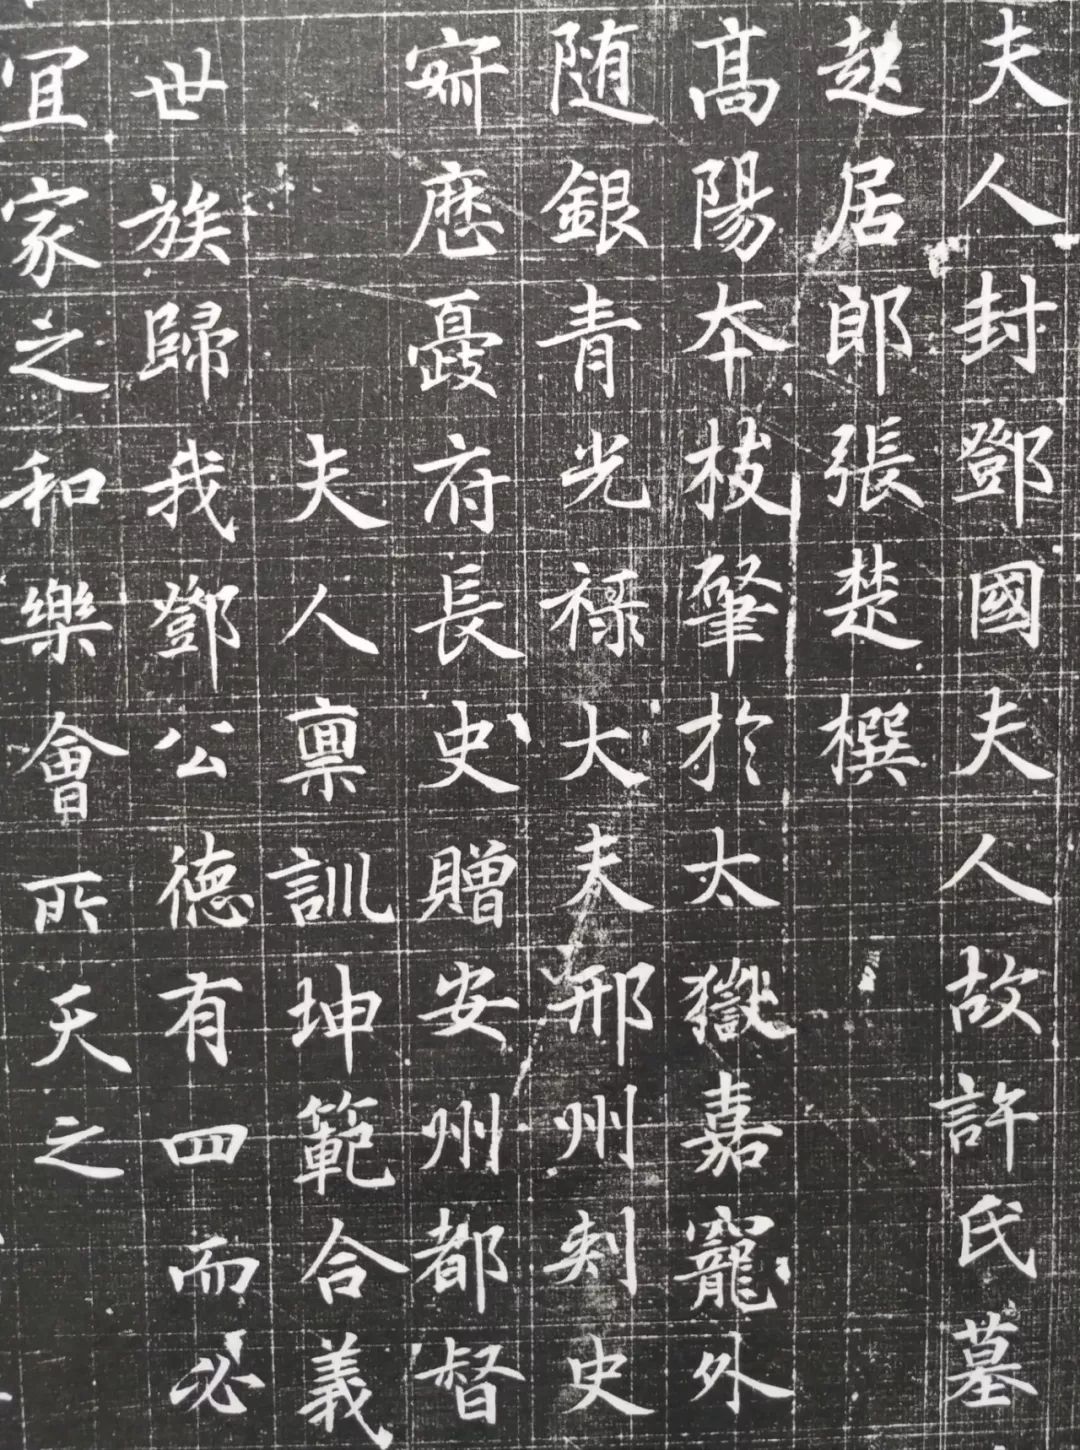 夫人封鄧國夫人故許氏墓
起居郎張楚撰
髙陽夲枝肇於太嶽嘉寵外
随銀青光禄大夫邢州刾史
府長史贈安州都督
夫人禀訓坤範合義
世族歸我鄧公德有四而必
宜家之和樂會所天之